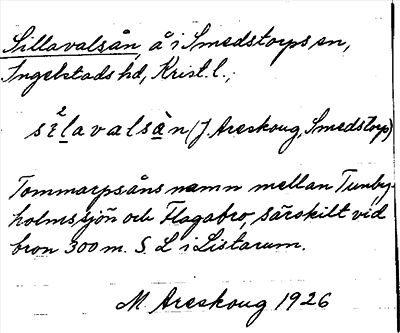 Sillavalsån, å i Smedstorps sn,
Ingelstads hd, Krist. l.;
si²lavalsàn (J. Areskoug, Smedstorp)
Tommarpsåns namn mellan Tunby-
holmssjön och Flagabro, särskilt vid
bron 300 m. S. L i Listarum.
M. Areskoug 1926